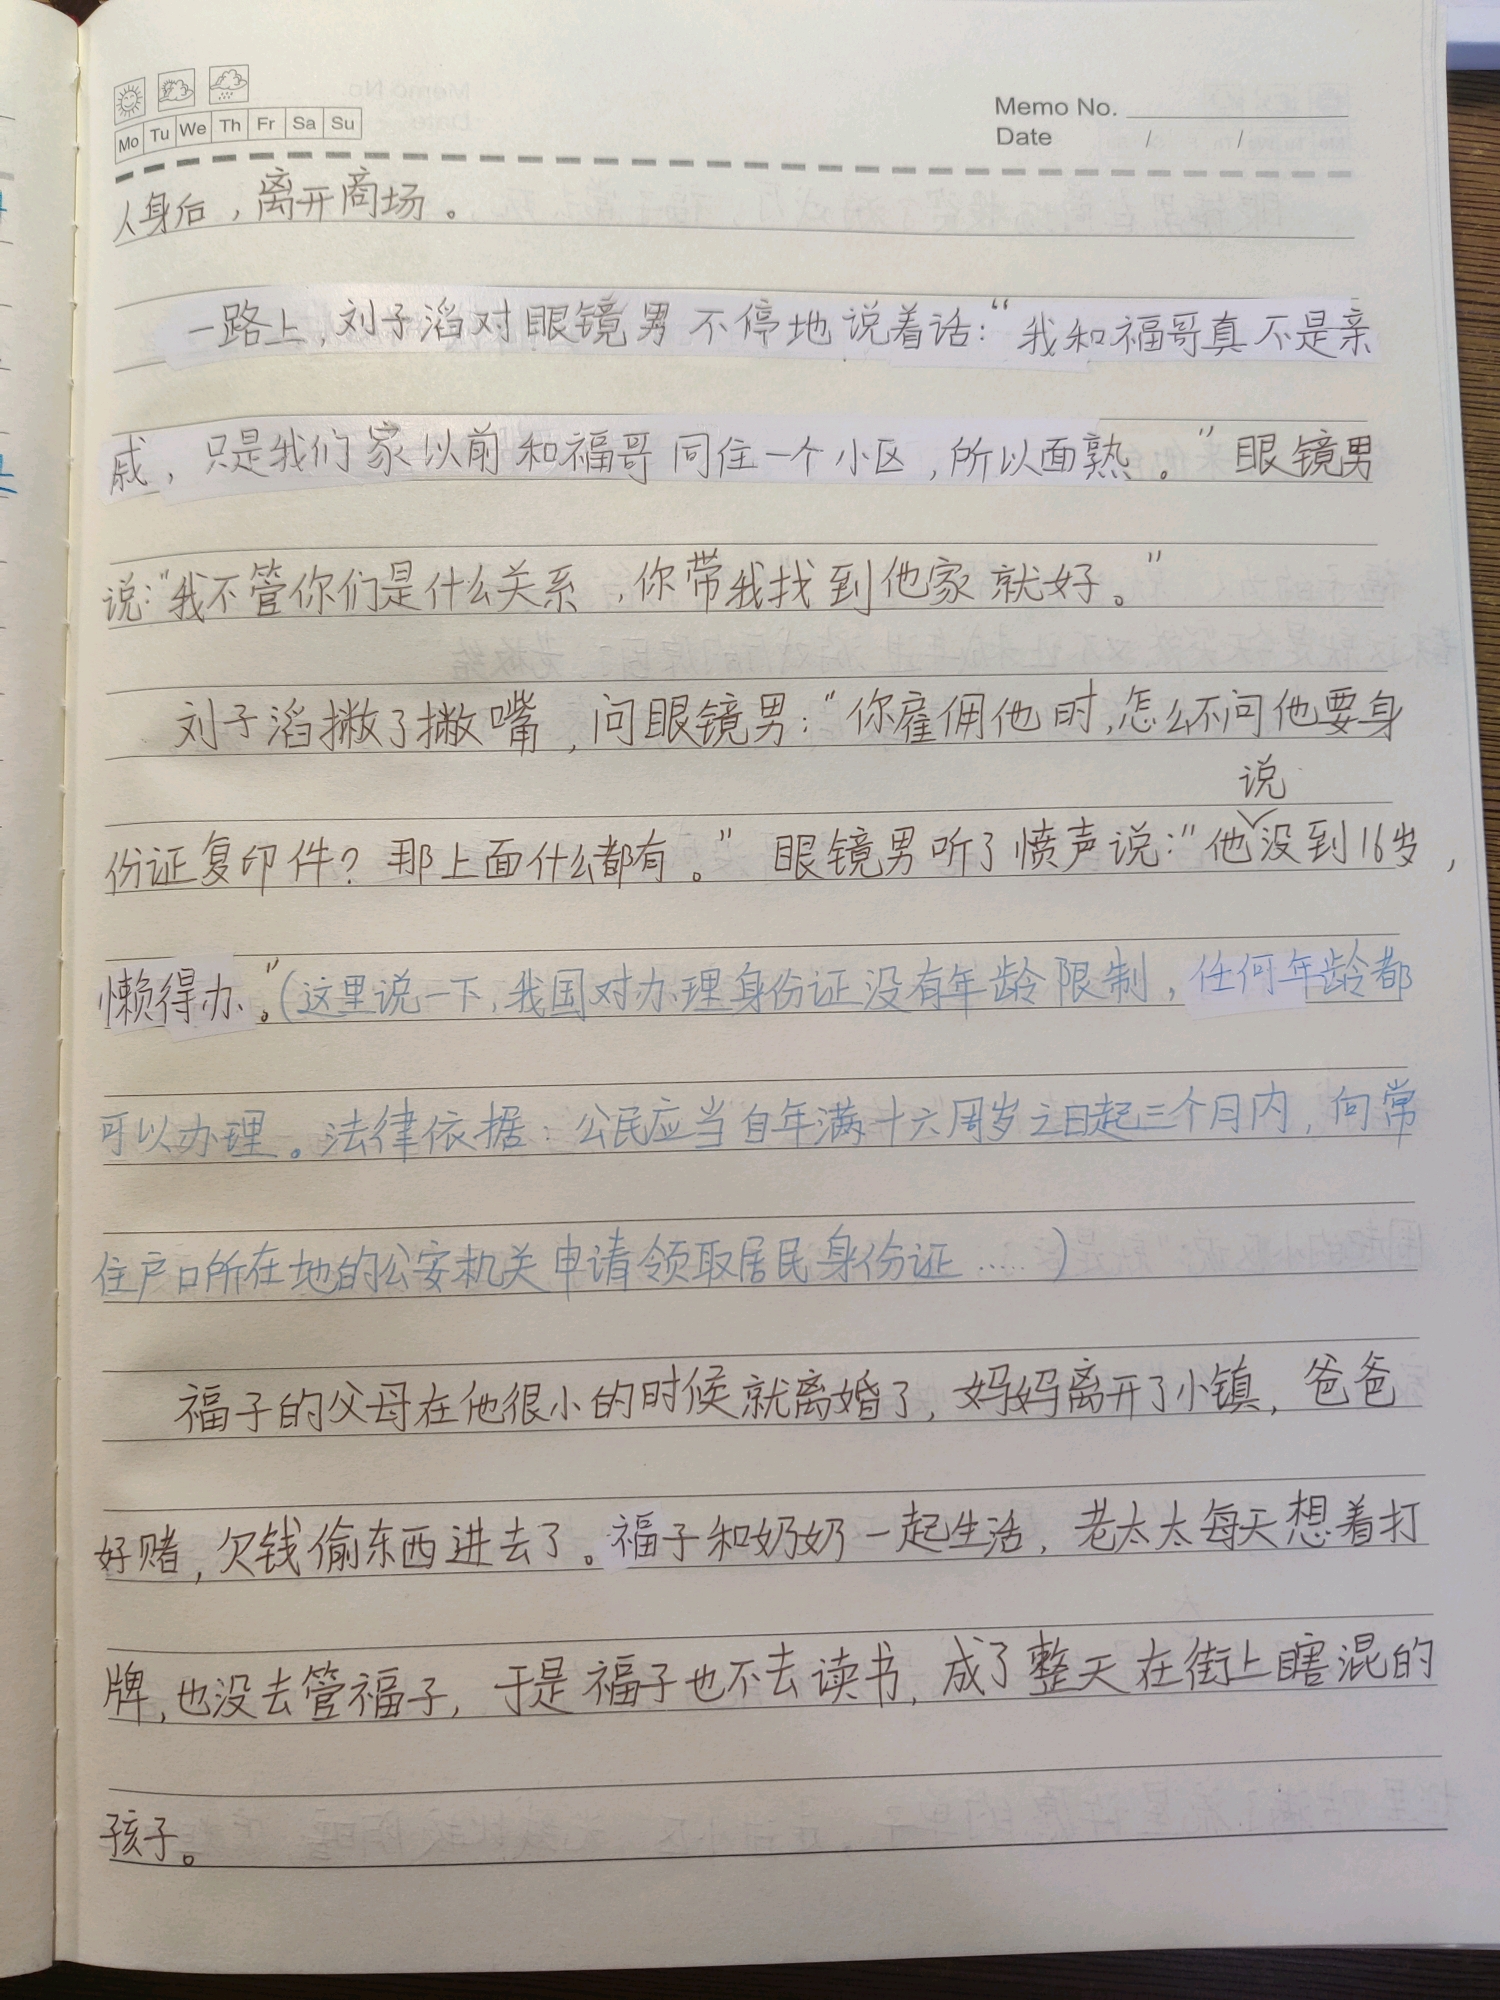 Mo Tu We Th Fr Sa Su
Memo No.
Date / /
人身后，离开商场。
一路上，刘子滔对眼镜男不停地说着话：“我和福哥真不是亲
戚，只是我们家以前和福哥同住一个小区，所以面熟。”眼镜男
说：“我不管你们是什么关系，你带我找到他家就好。”
刘子滔撇了撇嘴，问眼镜男：“你雇佣他时，怎么不问他要身
份证复印件？那上面什么都有。”眼镜男听了愤声说：“他说没到16岁，
懒得办。”（这里说一下，我国对办理身份证没有年龄限制，任何年龄都
可以办理。法律依据：公民应当自年满十六周岁之日起三个月内，向常
住户口所在地的公安机关申请领取居民身份证……）
福子的父母在他很小的时候就离婚了，妈妈离开了小镇，爸爸
好赌，欠钱偷东西进去了。福子和奶奶一起生活，老太太每天想着打
牌，也没去管福子，于是福子也不去读书，成了整天在街上瞎混的
孩子。